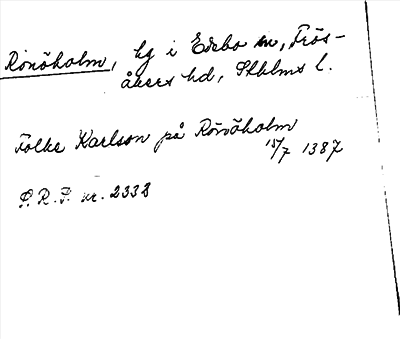 Rönöholm, hg i Edebo sn, Frös-
åkers hd, Sthlms l.
Folke Karlson på Rönöholm
15/7 1387
S.R.P. nr. 2338